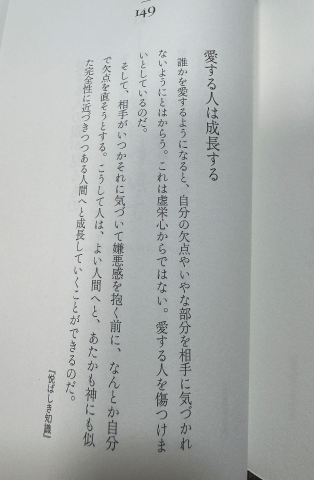 149
愛する人は成長する
誰かを愛するようになると、自分の欠点やいやな部分を相手に気づかれ
ないようにとはからう。これは虚栄心からではない。愛する人を傷つけま
いとしているのだ。
そして、相手がいつかそれに気づいて嫌悪感を抱く前に、なんとか自分
で欠点を直そうとする。こうして人は、よい人間へと、あたかも神にも似
た完全性に近づきつつある人間へと成長していくことができるのだ。
『悦ばしき知識』